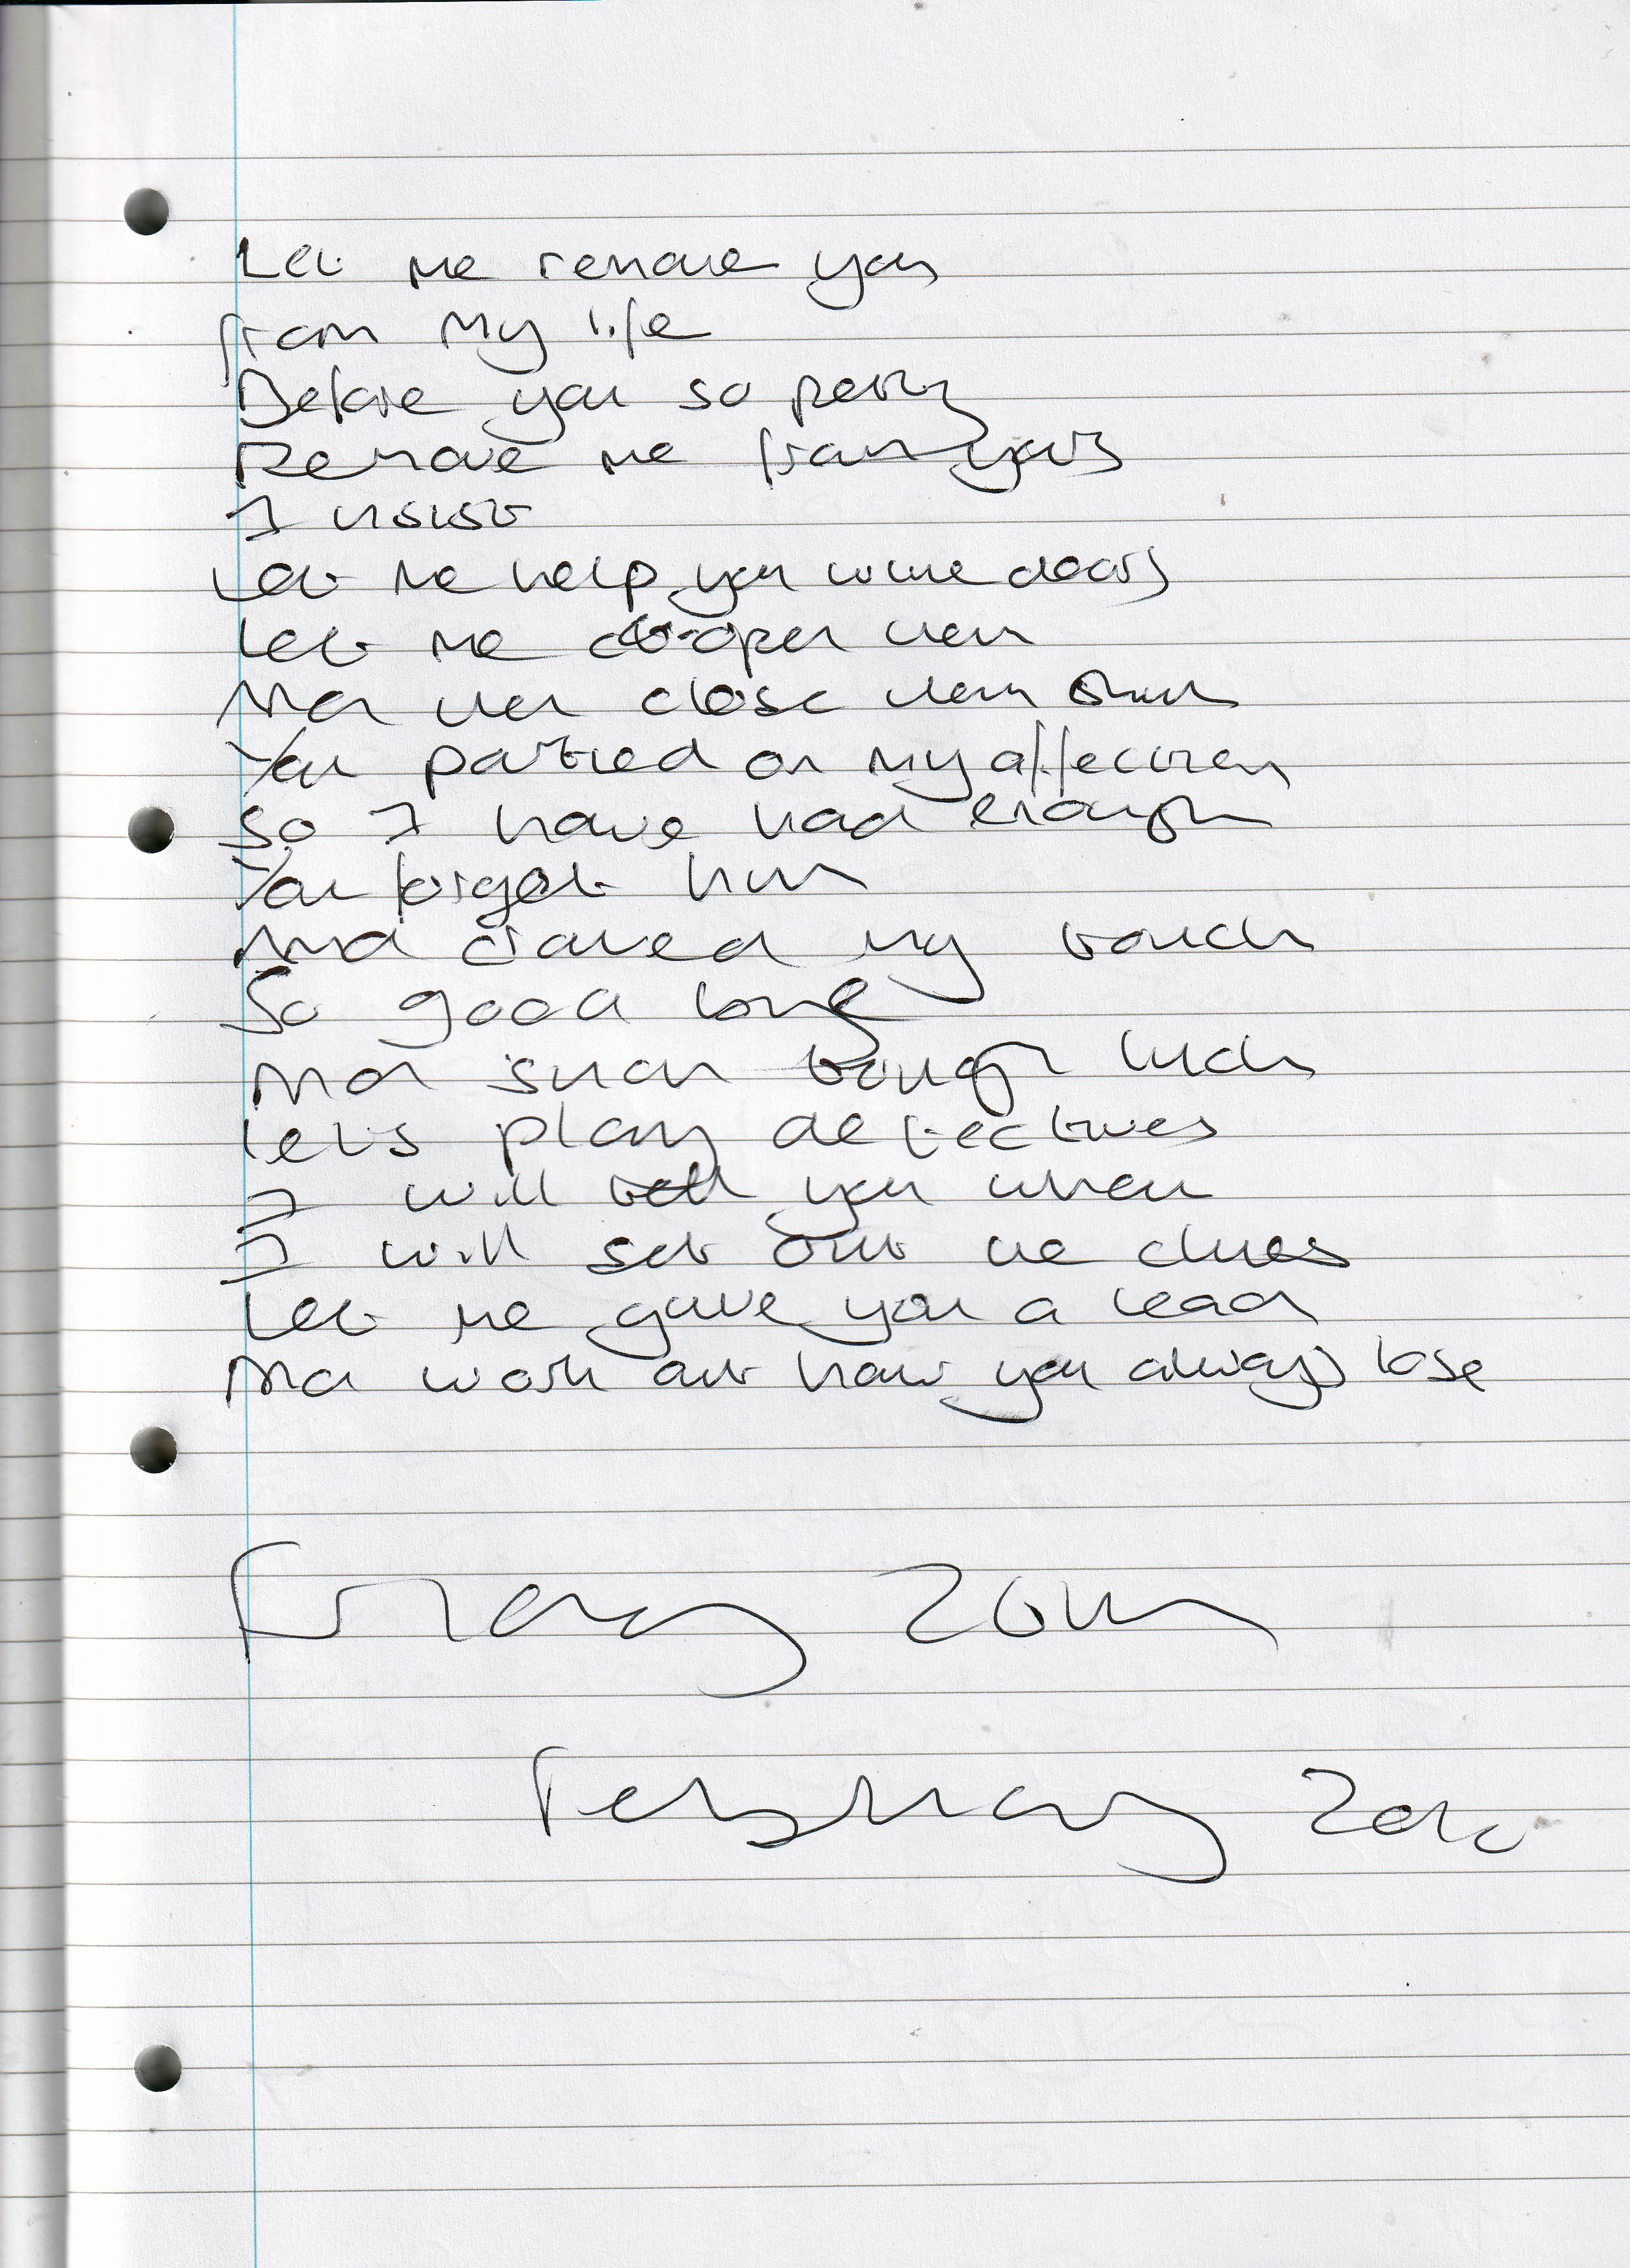 Let me remove you
from my life
Before you so petty
Remove me from yours
I insist
Let me help you with the doors
Let me open them
And then close them shut
You partied on my affections
So I have had enough
You forgot him
And craved my touch
So good
And such tough luck
Let's play detectives
I will tell you when
I will set out the clues
Let me give you a lead
And work out how you always lose
Friday 26th
February 2010